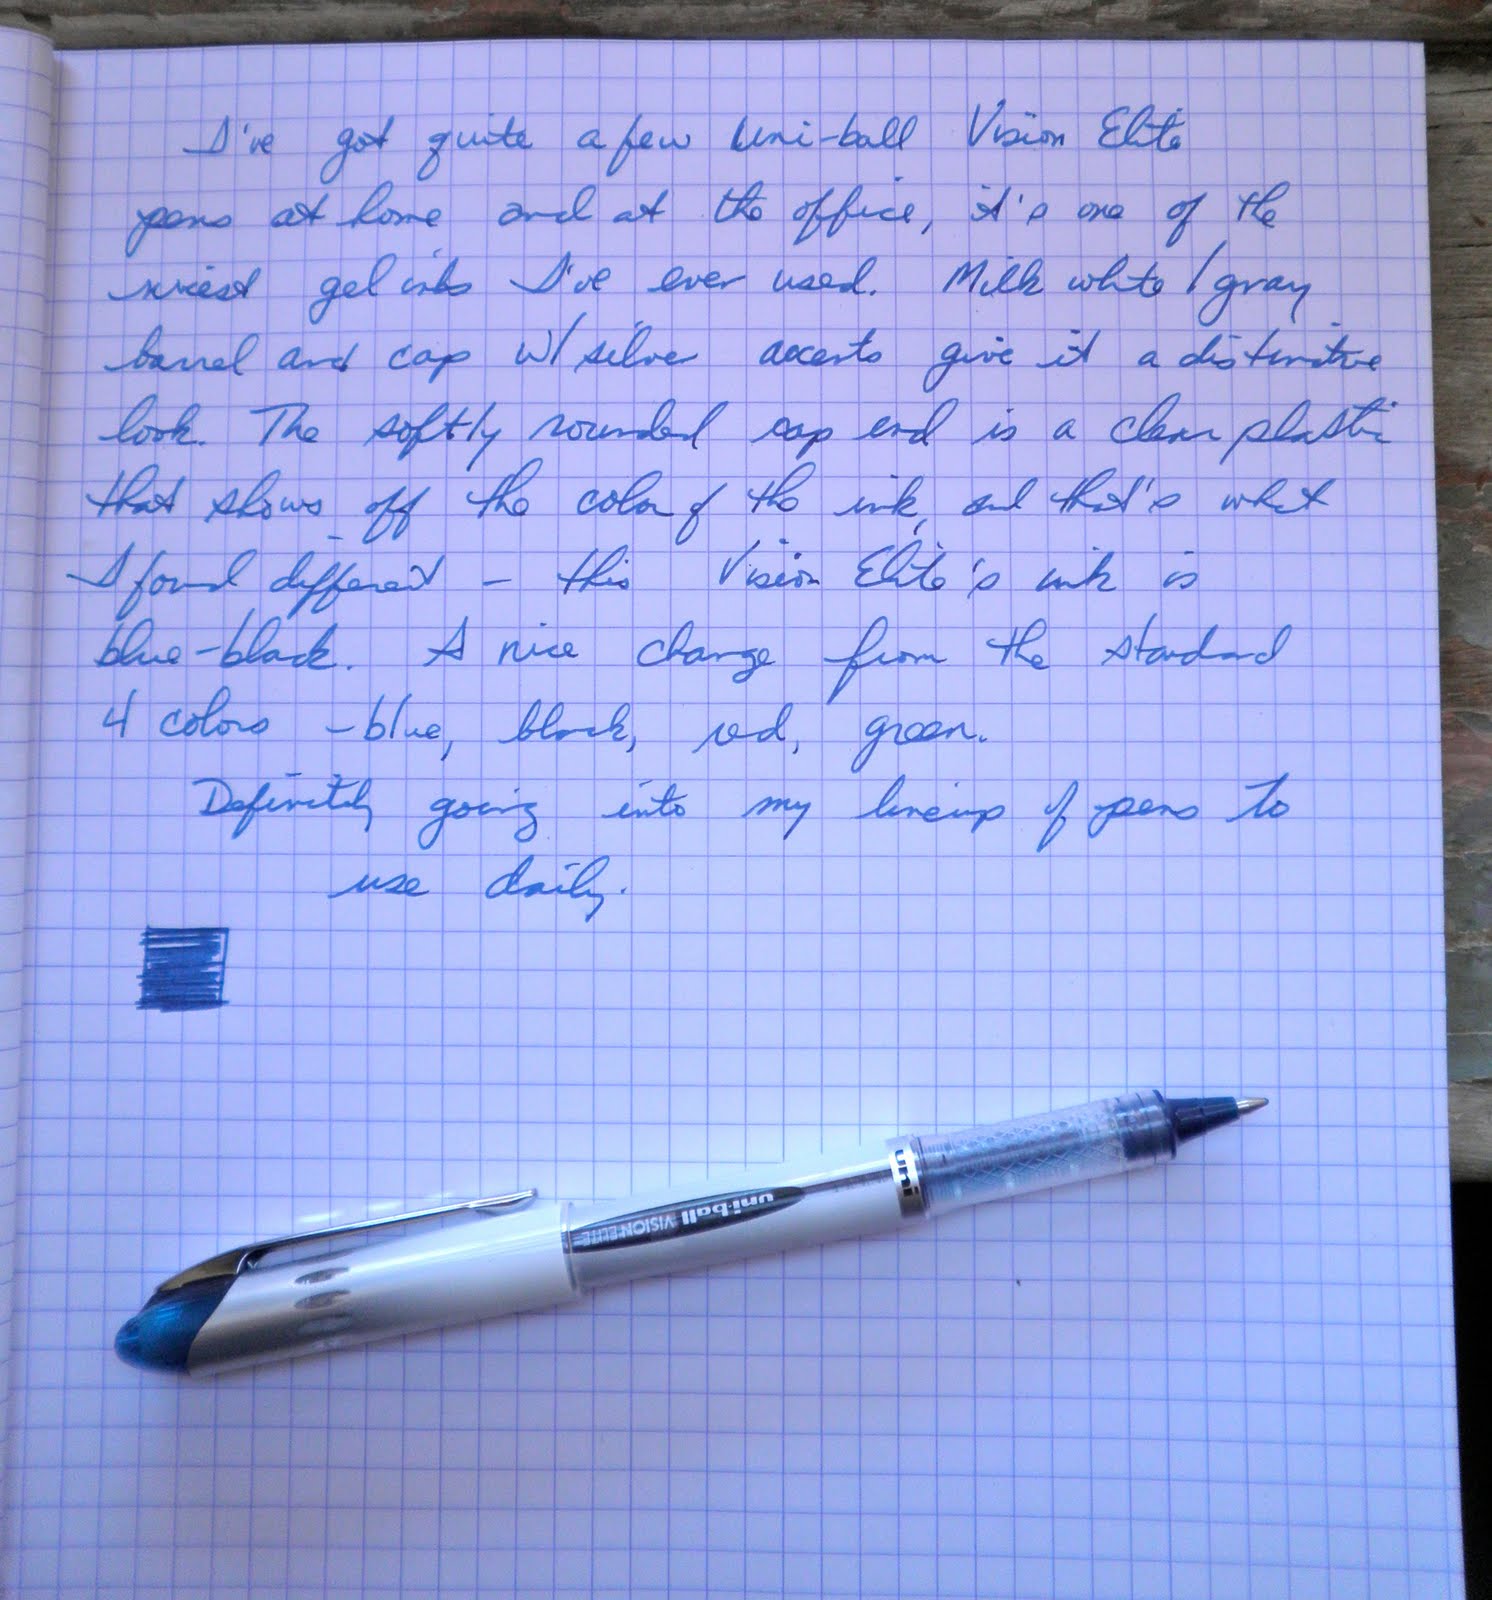 I've got quite a few Uni-ball Vision Elite
pens at home and at the office, it's one of the
nicest gel inks I've ever used. Milk white / gray
barrel and cap w/ silver accents give it a distinctive
look. The softly rounded cap end is a clear plastic
that shows off the color of the ink, and that's what
I found different - this Vision Elite's ink is
blue-black. A nice change from the standard
4 colors - blue, black, red, green.
Definitely going into my lineup of pens to
use daily.
uni
uni-ball VISION ELITE